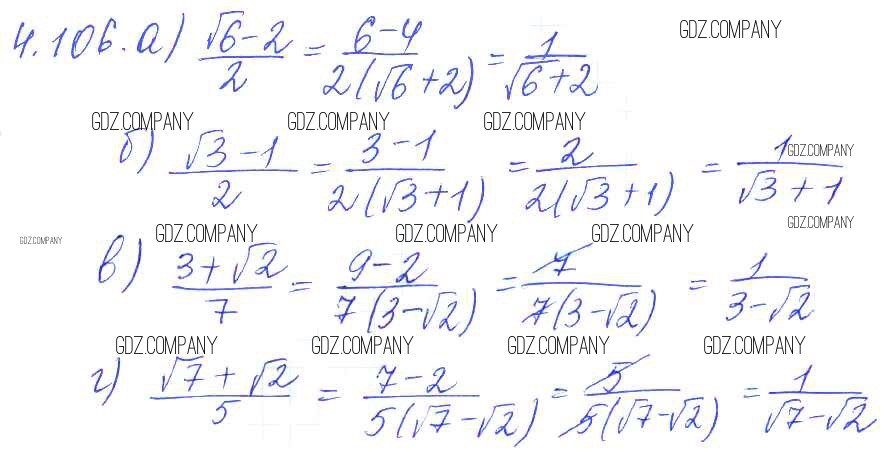 4.106. а) (√6 − 2)/2 = (6 − 4)/(2(√6 + 2)) = 1/(√6 + 2)
GDZ.COMPANY
GDZ.COMPANY GDZ.COMPANY GDZ.COMPANY
б) (√3 − 1)/2 = (3 − 1)/(2(√3 + 1)) = 2/(2(√3 + 1)) = 1/(√3 + 1)
GDZ.COMPANY
GDZ.COMPANY
GDZ.COMPANY GDZ.COMPANY GDZ.COMPANY GDZ.COMPANY
в) (3 + √2)/7 = (9 − 2)/(7(3 − √2)) = 7/(7(3 − √2)) = 1/(3 − √2)
GDZ.COMPANY GDZ.COMPANY GDZ.COMPANY GDZ.COMPANY
г) (√7 + √2)/5 = (7 − 2)/(5(√7 − √2)) = 5/(5(√7 − √2)) = 1/(√7 − √2)